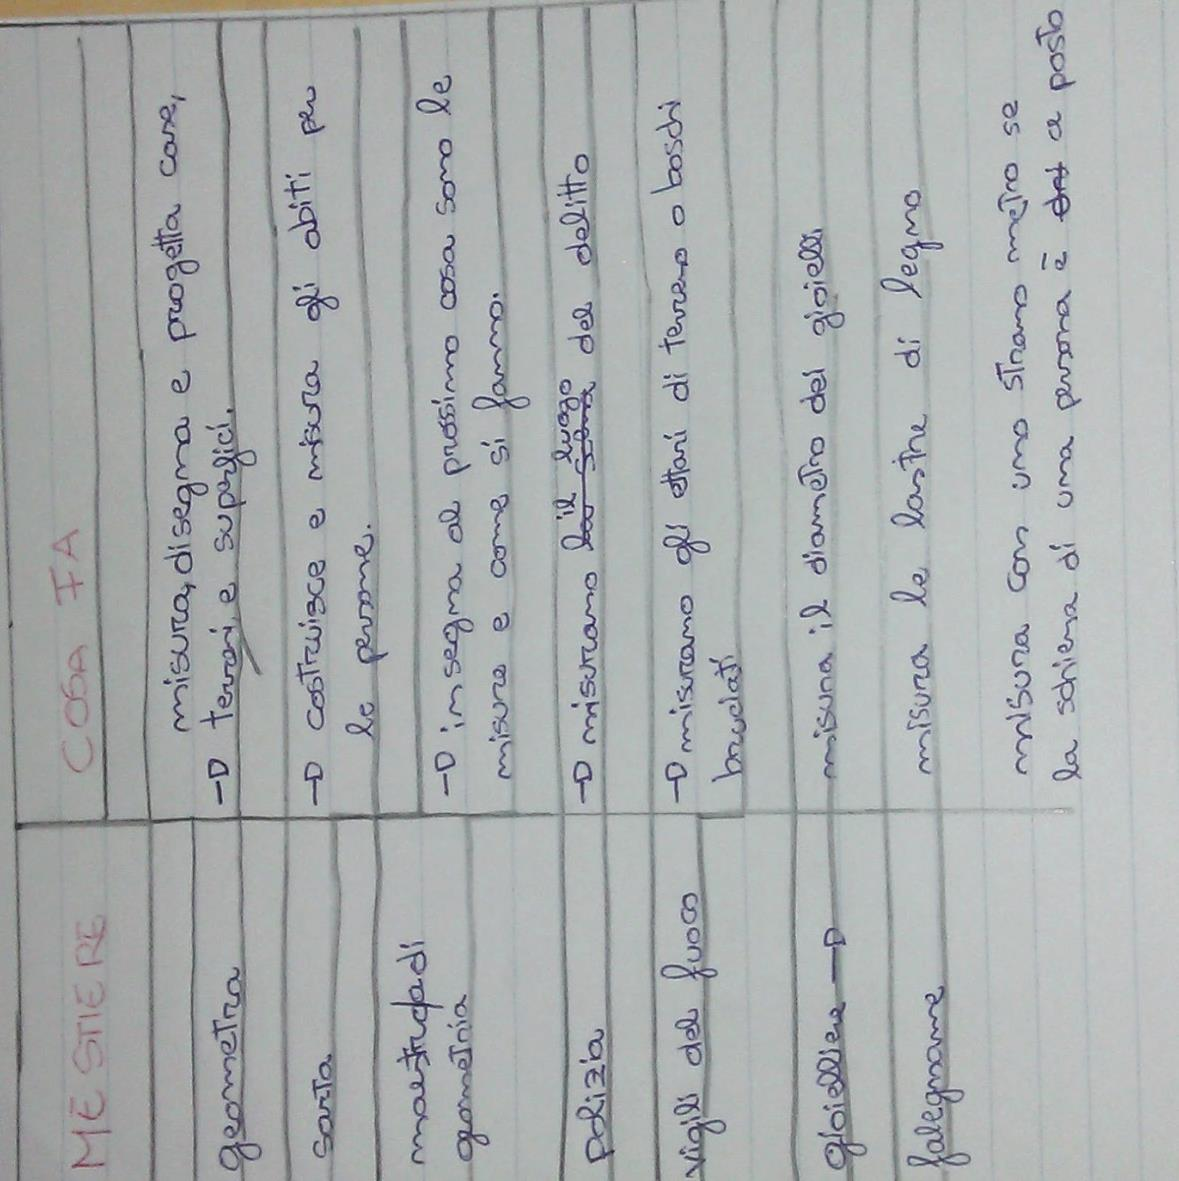 MESTIERE COSA FA
misura, disegna e progetta case,
geometra → terreni, e superfici.
sarta → costruisce e misura gli abiti per
le persone.
maestra di → insegna al prossimo cosa sono le
geometria misure e come si fanno.
il luogo
polizia → misurano la scena del delitto
vigili del fuoco → misurano gli ettari di terreno o boschi
bruciati
gioielliere → misura il diametro dei gioielli
falegname misura le lastre di legno
misura con uno strano metro se
la schiena di una persona è a posto